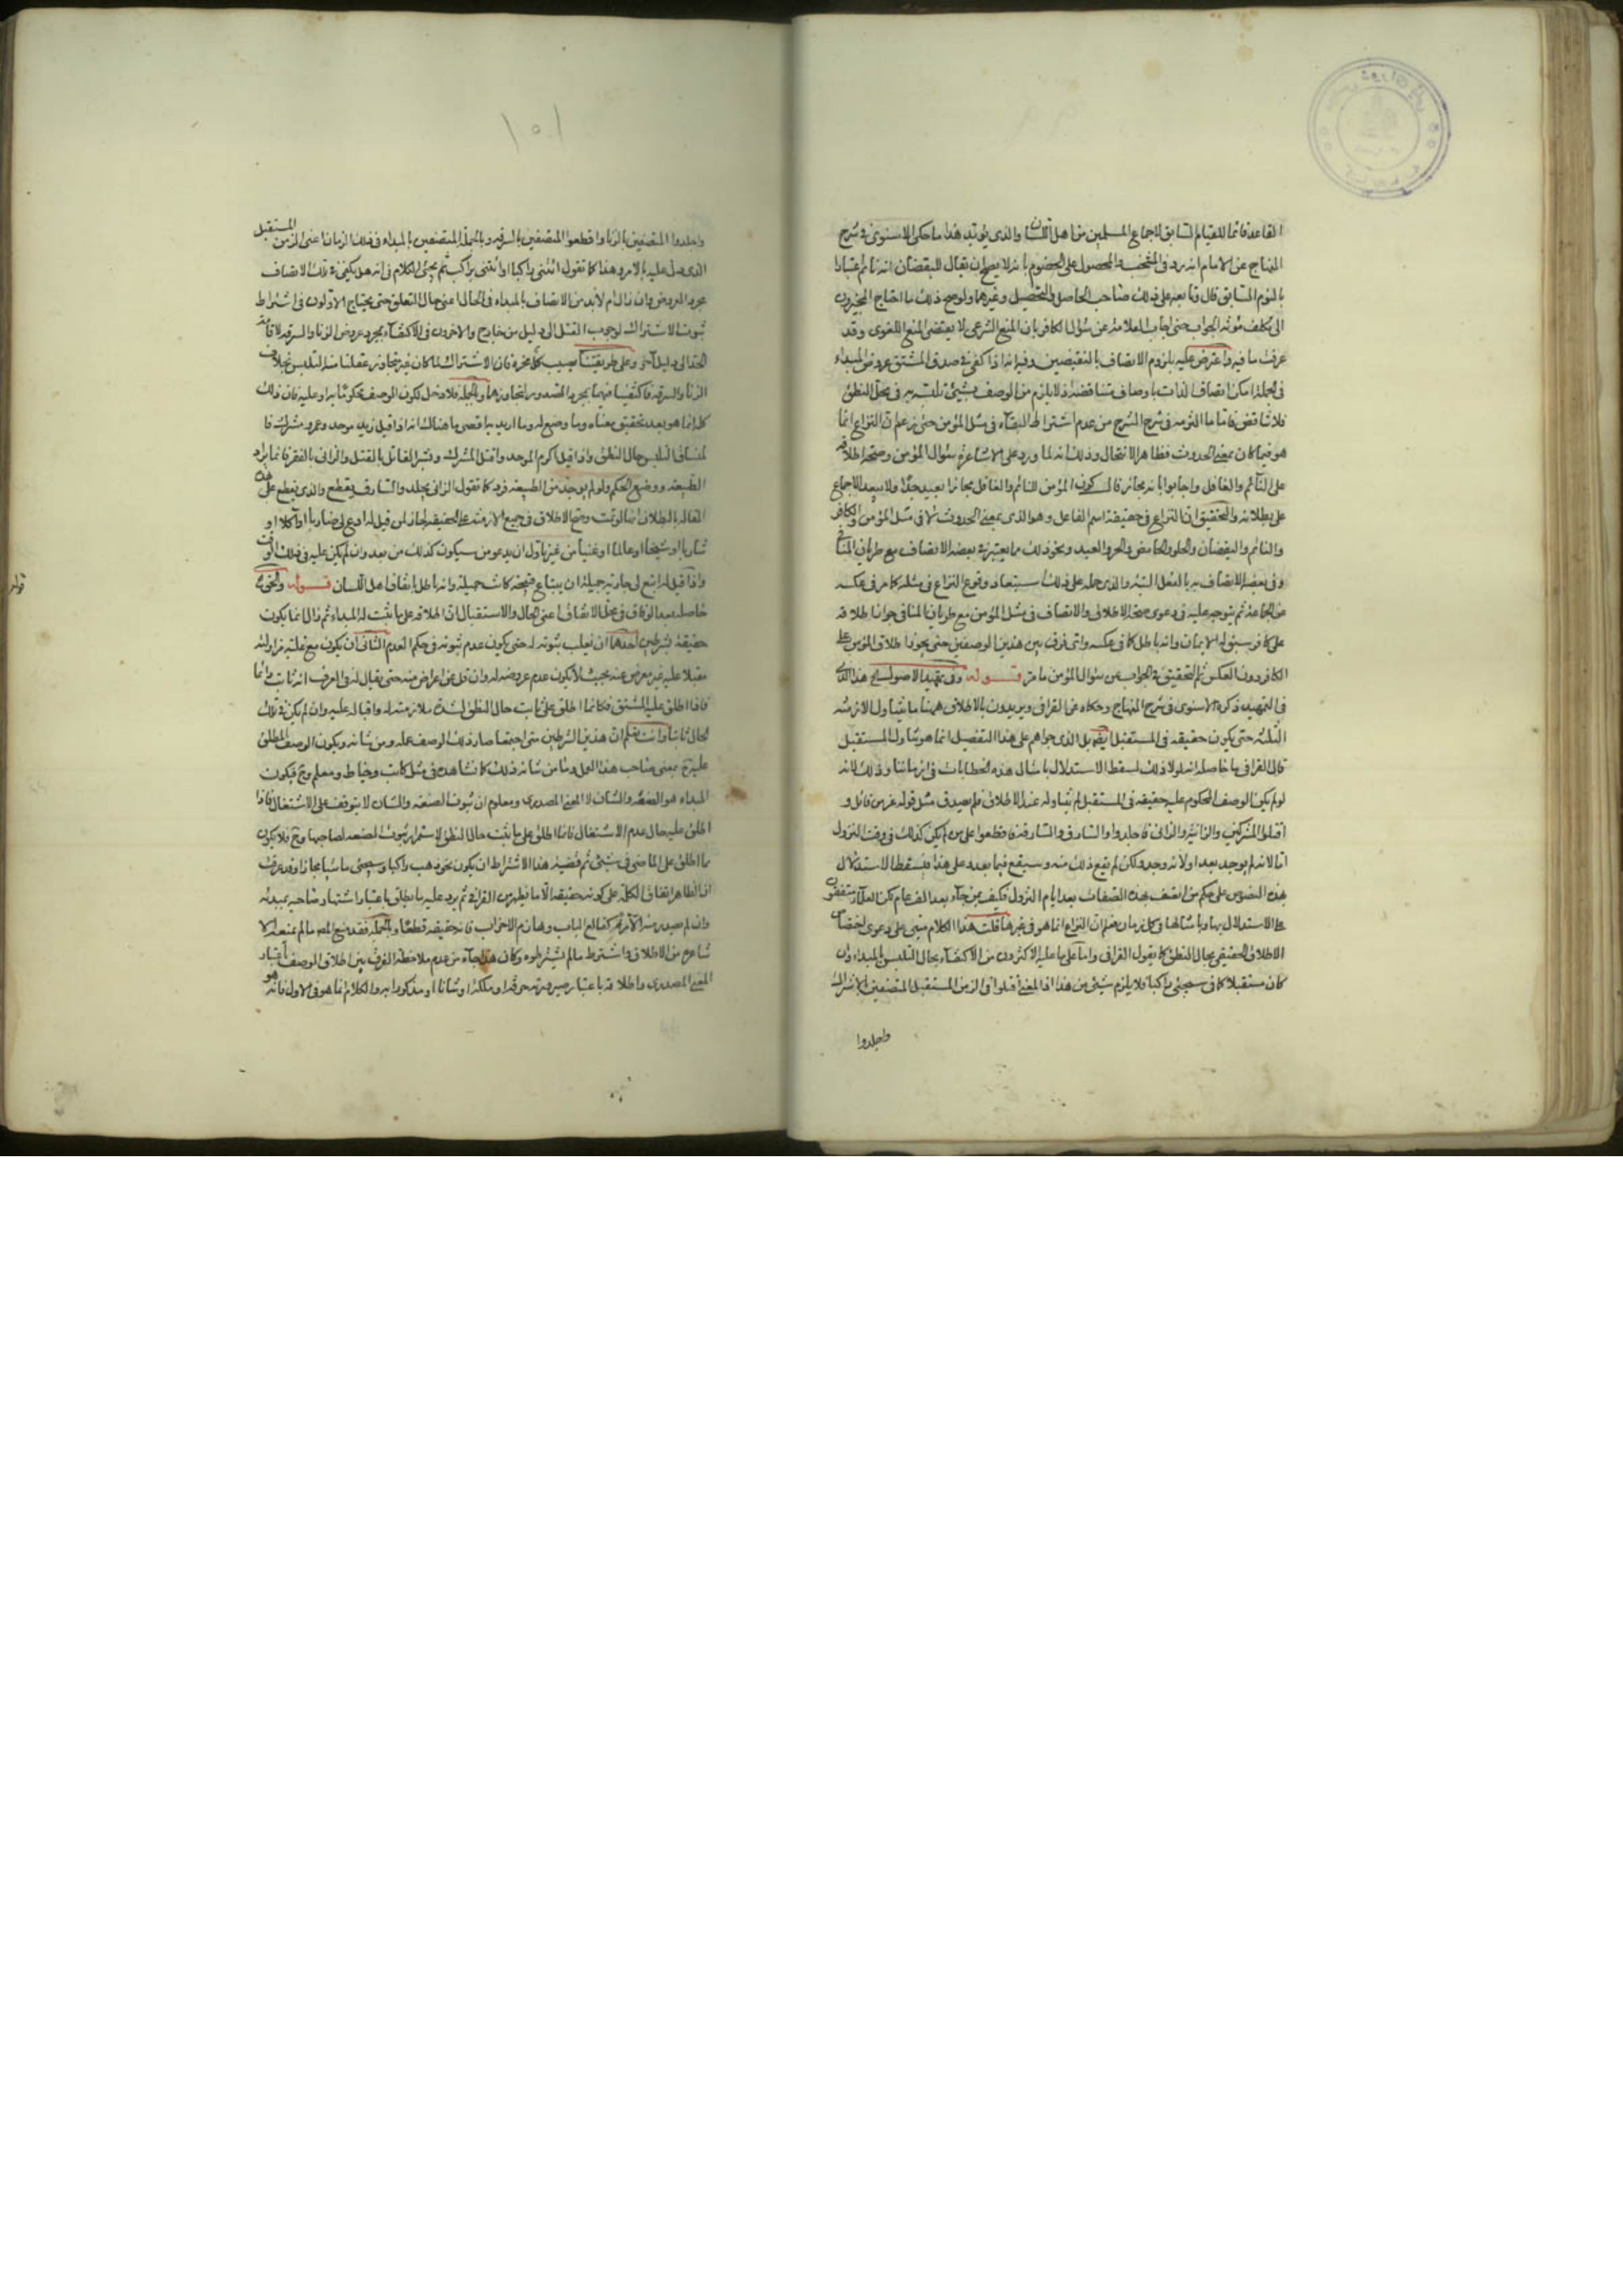 القاعدة قائما للقيام السابق لاجماع المسلمين من اهل اللسان والذى يؤيد هذا ما حكى الاسنوى فى شرح
المنهاج عن الامام انه رد فى المنتخب والمحصول على الخصوم بانه لا يصح ان يقال لليقضان انه نائم اعتبارا
بالنوم السابق قال وتابعه على ذلك صاحب الحاصل والتحصيل وغيرهما ولو صح ذلك ما احتاج المجيزون
الى تكلف مؤنة الجواب حتى اجاب العلامة عن سؤال الكافر بان المنع الشرعى لا يقتضى المنع اللغوى وقد
عرفت ما فيه واعترض عليه بلزوم الاتصاف بالنقيضين وفيه انه اذا كفى فى صدق المشتق عروض المبداء
فى الجملة امكن اتصاف الذات باوصاف متناقضة اذ لا يلزم من الوصف بشيئ تلبسه به فى محل النطق
فلا تناقض فاما ما التزمه فى شرح الشرح من عدم اشتراط البقاء فى مثل المؤمن حتى زعم ان النزاع انما
هو فيما كان بمعنى الحدوث فظاهر الانتحال وذلك انه لما ورد على الاشاعرة سؤال المؤمن وصحة اطلاقه
على النائم والغافل واجابوا بانه مجاز قال كون المؤمن للنائم والغافل مجازا بعيد جدا ولا يبعد الاجماع
على بطلانه والتحقيق ان النزاع فى حقيقة اسم الفاعل وهو الذى بمعنى الحدوث لا فى مثل المؤمن والكافر
والنائم واليقضان والحلو والحامض والحر والعبد ونحو ذلك مما يعتبر فى بعضه الاتصاف مع طريان المنافى
وفى بعضه الاتصاف به بالفعل البتة والذى حمله على ذلك استبعاد وقوع النزاع فى مثله كما مر فى عكسه
عن الجماعة ثم يتوجه عليه فى دعوى صحة الاطلاق والاتصاف فى مثل المؤمن مع طريان المنافى جواز اطلاقه
على كافر سبق له الايمان وانه باطل كما فى عكسه واى فرق بين هذين الوصفين حتى يجوز اطلاق المؤمن على
الكافر دون العكس ثم التحقيق فى الجواب عن سؤال المؤمن ما مر قوله وفى تمهيد الاصول الخ هذا الذى
فى التمهيد ذكره الاسنوى فى شرح المنهاج وحكاه عن القرافى ويريدون بالاطلاق ههنا ما يتناول الازمنة
الثلثة حتى يكون حقيقة فى المستقبل ايضا بل الذى جراهم على هذا التفصيل انما هو تناول المستقبل
قال القرافى ما حاصله انه لولا ذلك لسقط الاستدلال بامثال هذه الخطابات فى ازماننا وذلك لانه
لو لم يكن الوصف المحكوم عليه حقيقة فى المستقبل لم يتناوله عند الاطلاق فلم يصدق مثل قوله عز من قائل و
اقتلوا المشركين والزانية والزانى فاجلدوا والسارق والسارقة فاقطعوا على من لم يكن كذلك فى وقت النزول
اما لانه لم يوجد بعد او لانه وجد ولكن لم يقع ذلك منه وسيقع فيما بعد وعلى هذا فيسقط الاستدلال
بهذه النصوص على حكم من اتصف بهذه الصفات بعد ايام النزول فكيف بمن جاء بعد الف عام لكن العلماء متفقون
على الاستدلال بها وبامثالها فى كل زمان فعلم ان النزاع انما هو فى غيرها قلت هذا الكلام مبنى على دعوى اختصاص
الاطلاق الحقيقى بحال النطق كما يقول القرافى واما على ما عليه الاكثرون من الاكتفاء بحال التلبس بالمبداء وان
كان مستقبلا كما فى سيجئ راكبا فلا يلزم شيئ من هذا اذ المعنى اقتلوا فى الزمن المستقبل المتصفين بالاشراك
واجلدوا
١٥١
واجلدوا المتصفين بالزنا واقطعوا المتصفين بالسرقة وبالجملة المتصفين بالمبداء فى ذلك الزمان اعنى الزمن المستقبل
الذى دل عليه بالامر وهذا كما تقول ائتنى راكبا او ائتنى براكب ثم يجئ الكلام فى انه هل يكفى فى ذلك الاتصاف
مجرد العروض وان زال ام لابد من الاتصاف بالمبداء فى الحال اعنى حال التعلق حتى يحتاج الاولون فى اشتراط
ثبوت الاشتراك لوجوب القتل الى دليل من خارج والاخرون فى الاكتفاء بمجرد عروض الزنا والسرقة لاقامة
الحد الى دليل آخر وعلى طريقتنا يصيب كل محزه فان الاشتراك لما كان غير متجاوز عقلنا منه التلبس بخلاف
الزنا والسرقة فاكتفينا فيهما بمجرد الصدور لتجاوزهما وبالجملة فلا دخل لكون الوصف محكوما به او عليه فان ذلك
كله انما هو بعد تحقيق معناه وما وضع له وما اريد به اقصى ما هناك انه اذا قيل زيد موحد وعمرو مشرك فا
لمتساق التلبس حال النطق واذا قيل اكرم الموحد واقتل المشرك وبشر القاتل بالقتل والزانى بالفقر فانما يراد
الطبيعة ووضع الحكم ولو لم يوجد من الطبيعة فرد كما تقول الزانى يجلد والسارق يقطع والذى يقطع على هذه
المقالة بالبطلان انها لو تمت وصح الاطلاق فى جميع الازمنة على الحقيقة لجاز لمن قيل له ادع لى ضاربا او آكلا او
شاربا او شيخا او عالما او غنيا من غير تاول ان يدعو من سيكون كذلك من بعد وان لم يكن عليه فى ذلك الوقت
واذا قيل له ابتع لى جارية جميلة ان يبتاع قبيحة كانت جميلة وانه باطل باتفاق اهل اللسان قوله والنحوى
حاصله بعد الوفاق فى محل الاتفاق اعنى الحال والاستقبال ان اطلاقه على ما ثبت له المبداء ثم زال انما يكون
حقيقة بشرطين احدهما ان يغلب ثبوته له حتى يكون عدم ثبوته فى حكم العدم الثانى ان يكون مع غلبة مزاولته
مقبلا عليه غير معرض عنه بحيث لا يكون عدم عروضه له وان قل عن اعراض منه حتى يقال له فى العرف انه ثابت دائما
فاذا اطلق عليه المشتق فكانما اطلق على ثابت حال النطق لشدة ملازمته له واقباله عليه وان لم يكن فى تلك
الحال ثابتا وانت تعلم ان هذين الشرطين متى اجتمعا صار ذلك الوصف عمله ومن شانه ويكون الوصف المطلق
عليه ح بمعنى صاحب هذا العمل وما من شانه ذلك كما نشاهده فى مثل كاتب وخياط ومعلم وح فيكون
المبداء هو الصنعة والشان لا المعنى المصدرى ومعلوم ان ثبوت الصنعة والشان لا يتوقف على الاشتغال فاذا
اطلق عليه حال عدم الاشتغال فانما اطلق على ما ثبت حال النطق لاستمرار ثبوت الصنعة لصاحبها وح فلا يكون
مما اطلق على الماضى فى شيئ ثم قضية هذا الاشتراط ان يكون نحو ذهب راكبا وسيجئ ماشيا مجازا وقد عرفت
ان الظاهر اتفاق الكلمة على كونه حقيقة الا ما يظهر من القرافى ثم يرد عليه ما يطلق باعتبار اشتهار صاحبه بمبدئه
وان لم يصدر منه الا مرة كقالع الباب وهازم الاحزاب فانه حقيقة قطعا وبالجملة فقد منع المص ما لم يمنعه الا
شاعرة من الاطلاق واشترط ما لم يشترطوه وكان هذا جاء من عدم ملاحظة الفرق بين اطلاق الوصف باعتبار
المعنى المصدرى واطلاقه باعتبار صيرورته حرفة او ملكة او شانا او مذكورا به والكلام انما هو فى الاول فانه هو